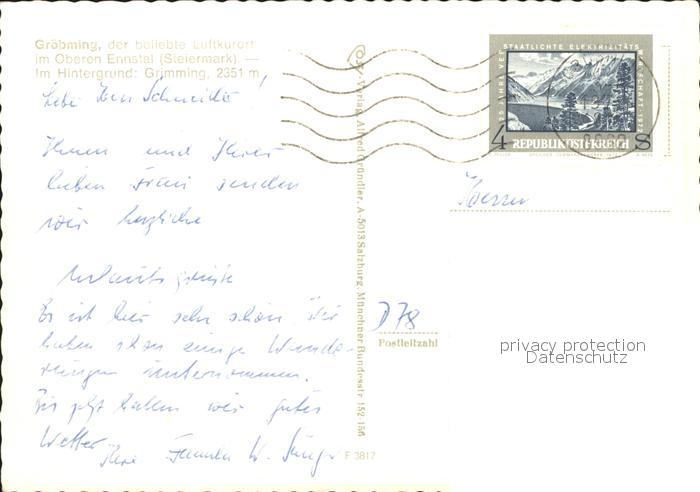 Gröbming, der beliebte Luftkurort
im Oberen Ennstal (Steiermark). —
Im Hintergrund: Grimming, 2351 m
Herr Schneider!
Ihnen und Ihrer
lieben Frau senden
wir herzliche
Urlaubsgrüße
Es ist hier sehr schön. Wir
haben schon einige Wande-
rungen unternommen.
Bis jetzt hatten wir gutes
Wetter
Ihre Familie W.
F 3817
Verlag Alfred Gründler, A-5013 Salzburg, Münchner Bundesstr. 152-156
25 JAHRE VER STAATLICHTE ELEKTRIZITÄTS WIRTSCHAFT 1972
4 REPUBLIK ÖSTERREICH S
Herrn
D 78
Postleitzahl
privacy protection
Datenschutz